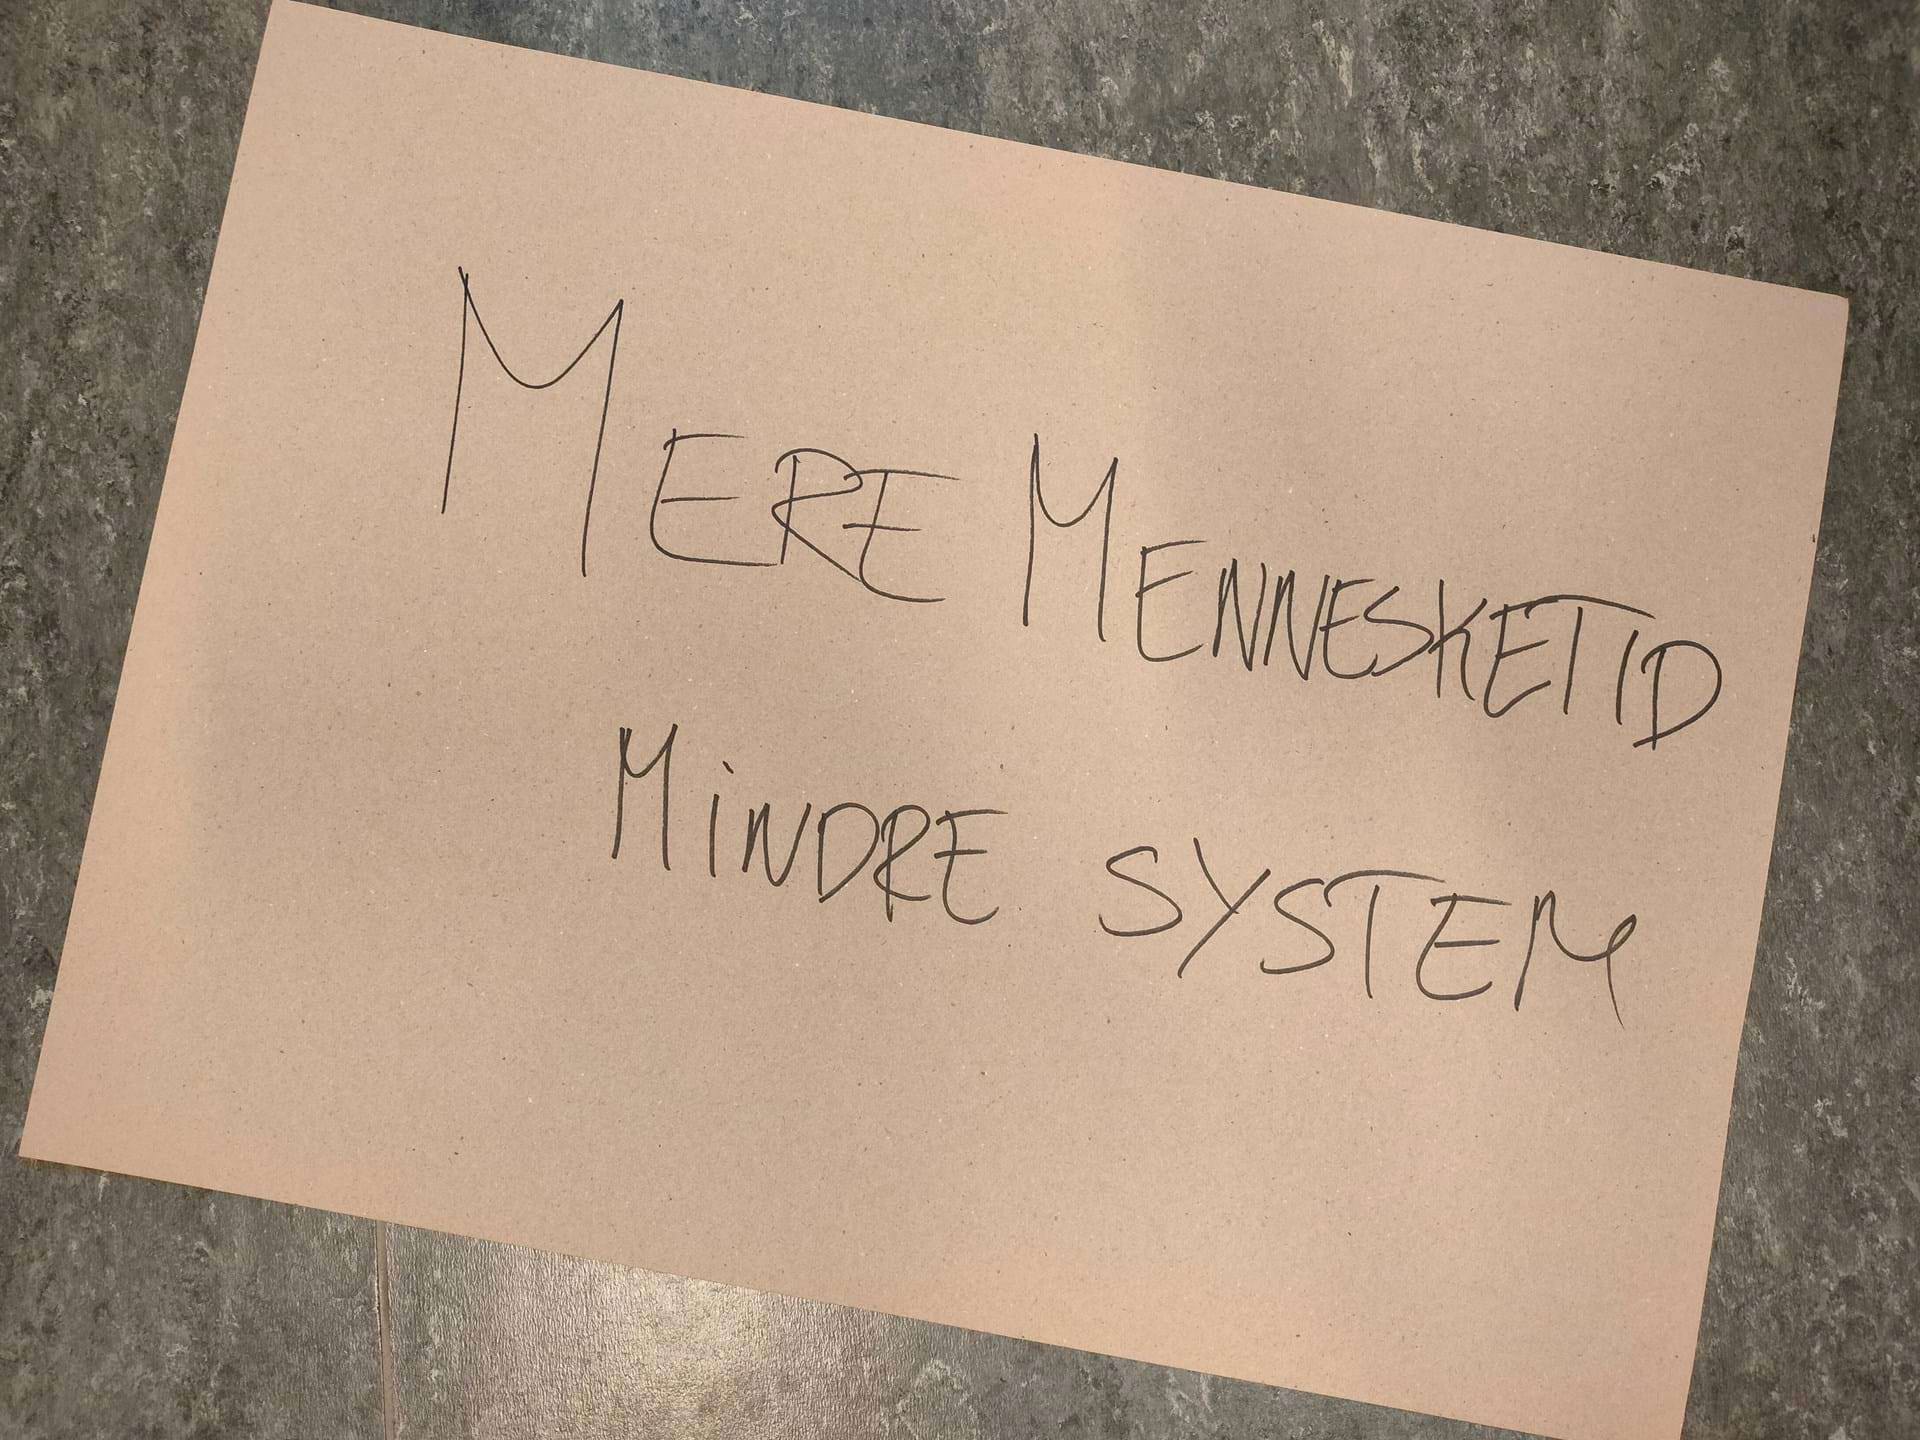 MERE MENNESKETID
MiNDRE SYSTEM